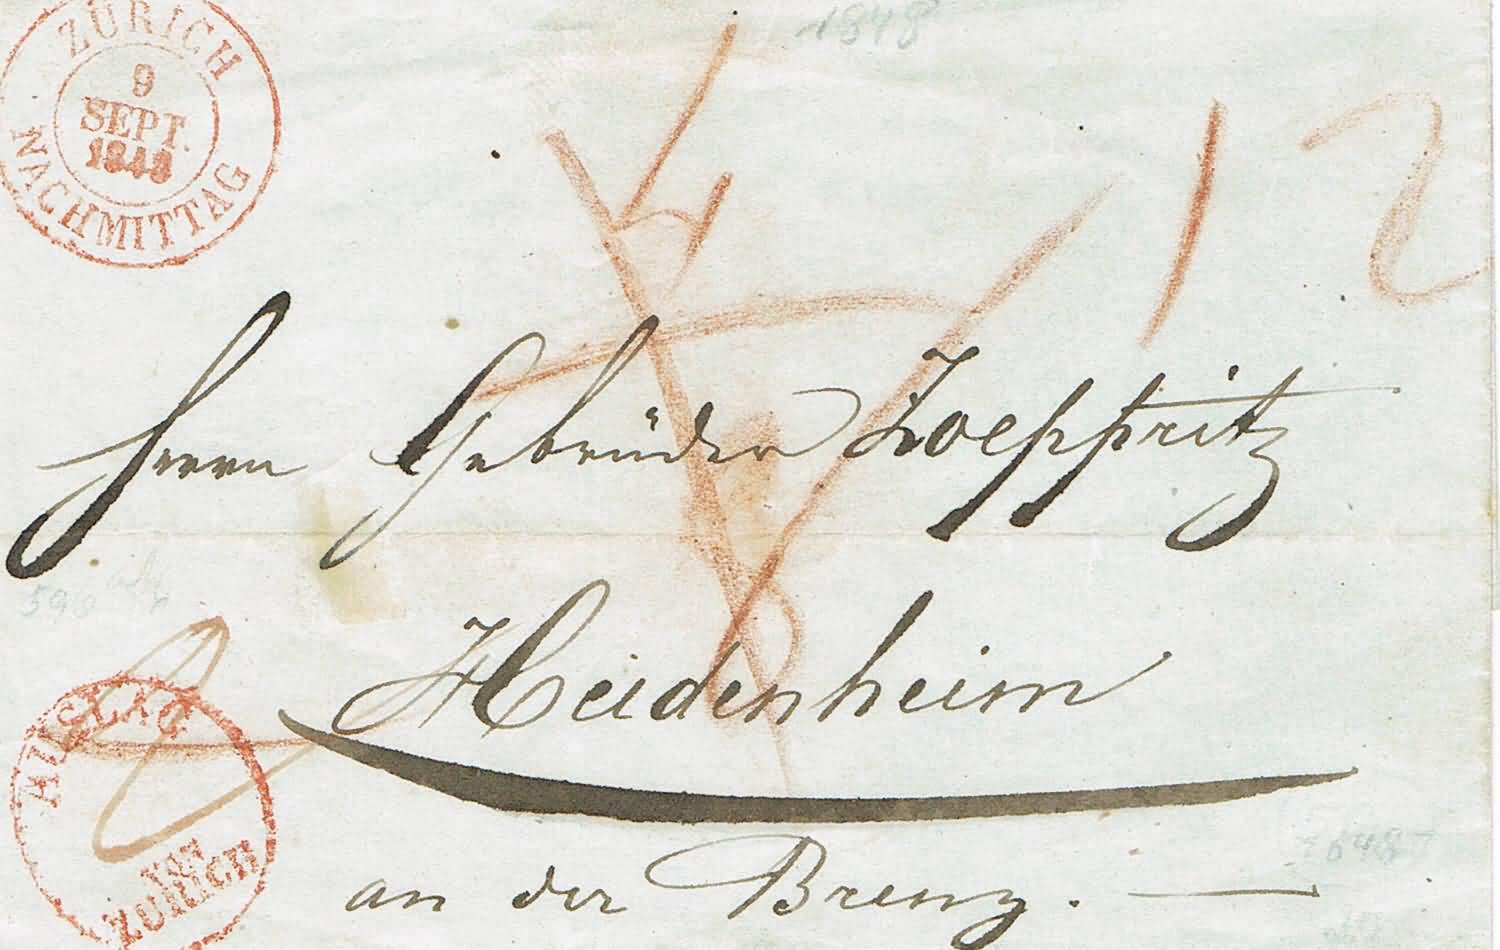 1848
ZÜRICH
9
SEPT.
1848
NACHMITTAG
12
Herrn Gebrüder Zoeppritz
Heidenheim
an der Brenz.
AUSLAG
VON
ZÜRICH
1848